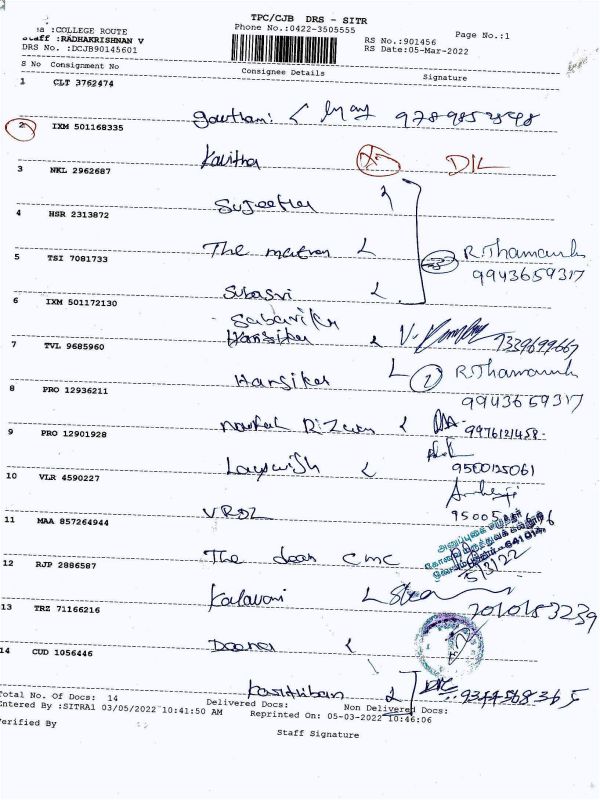 TPC/CJB DRS - SITR
:COLLEGE ROUTE
Phone No.:0422-3505555
Page No.:1
Staff :RADHAKRISHNAN V
RS No.:901456
DRS No. :DCJB90145601
RS Date:05-Mar-2022
S No Consignment No Consignee Details Signature
1 CLT 3762474
Gowthami 9789852898
2 IXM 501168335
Kavitha DIL
3 NKL 2962687
Sujeetha
4 HSR 2313872
The matron
5 TSI 7081733
R.Thamarai
9943659317
Subasri
6 IXM 501172130
Sabarika
Harsika 7339699667
7 TVL 9685960
Harsika R.Thamarai
8 PRO 12936211
9943659317
9976121458
9 PRO 12901928
9500125061
10 VLR 4590227
VRDL
11 MAA 857264944
The dean CMC
5/3/22
12 RJP 2886587
Kalavani
13 TRZ 71166216
14 CUD 1056446
9344568365
Total No. Of Docs: 14 Delivered Docs: Non Delivered Docs:
Entered By :SITRA1 03/05/2022 10:41:50 AM Reprinted On: 05-03-2022 10:46:06
Verified By
Staff Signature